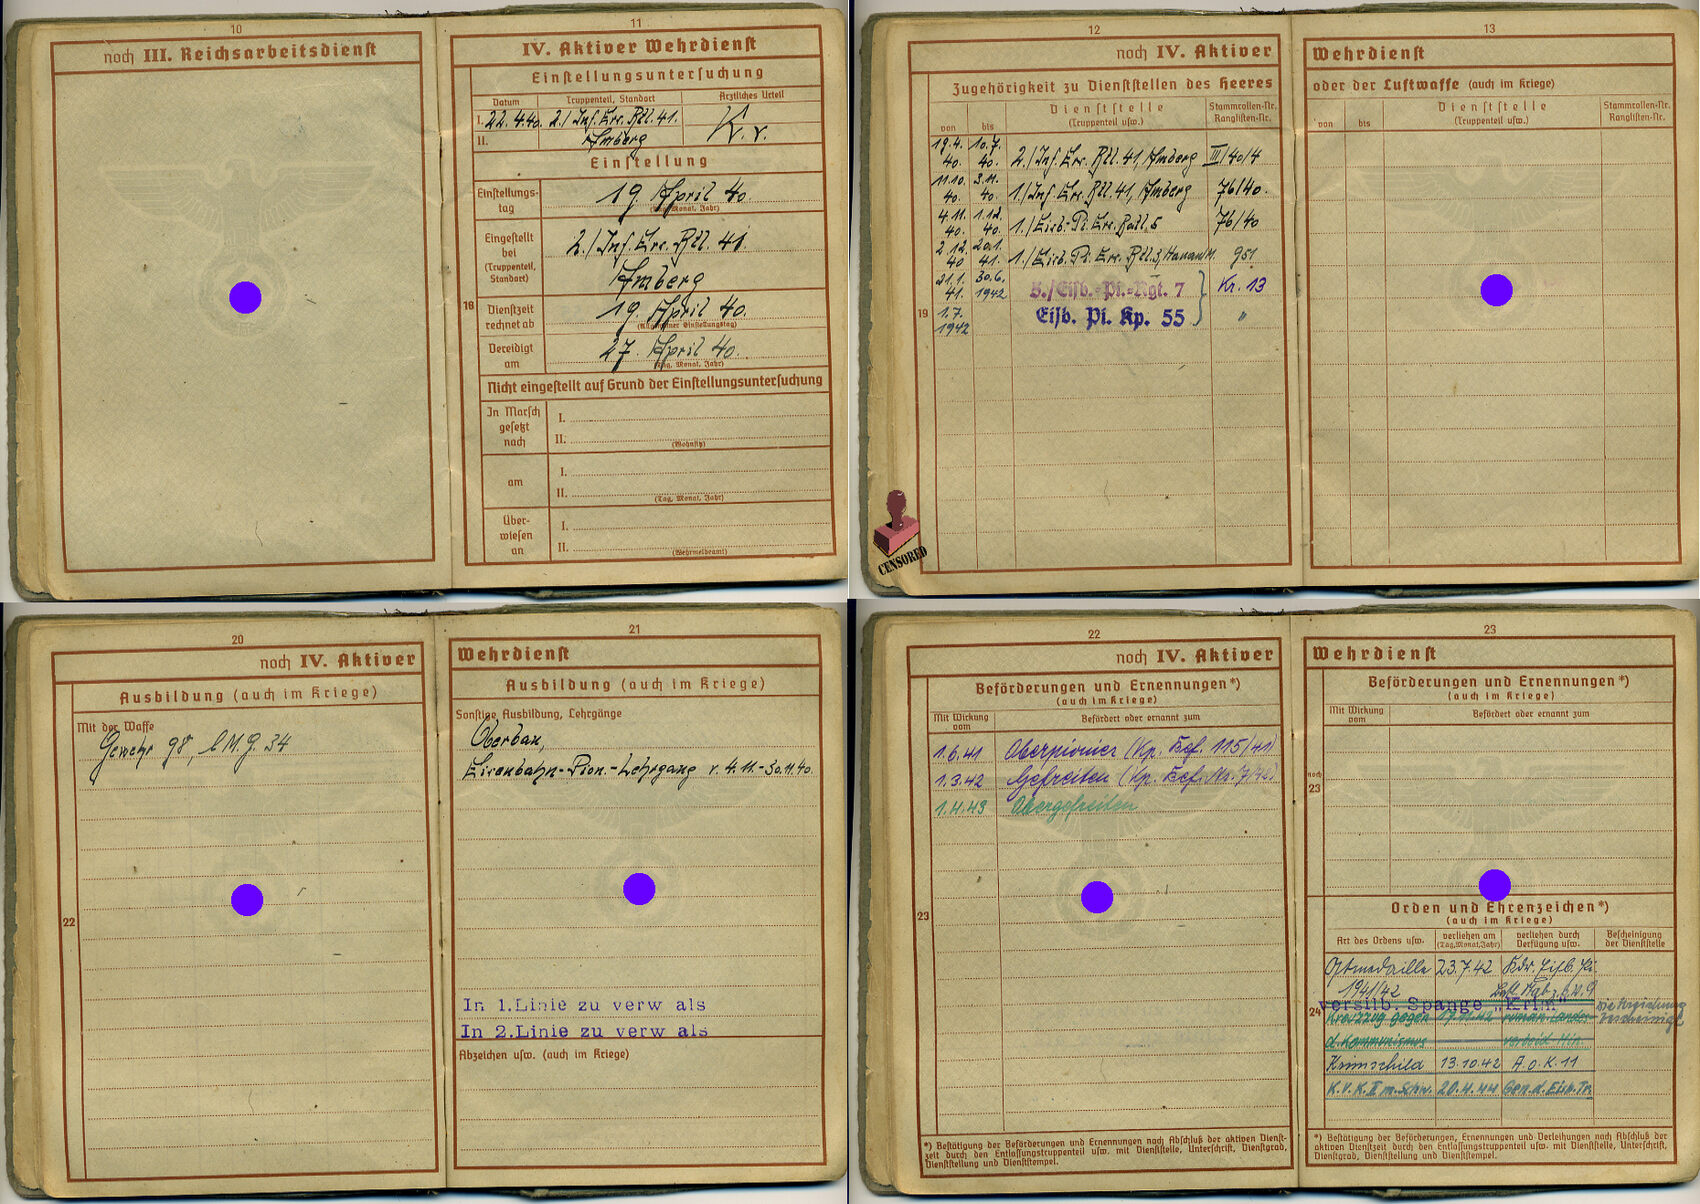 10
noch III. Reichsarbeitsdienst
11
IV. Aktiver Wehrdienst
Einstellungsuntersuchung
Datum Truppenteil, Standort Ärztliches Urteil
I. 22.4.40. 2./Inf. Ers. Btl. 41. K.v.
II. Amberg
Einstellung
Einstellungs-
tag
19. April 40.
(Tag, Monat, Jahr)
Eingestellt
bei
(Truppenteil,
Standort)
2./Inf. Ers. Btl. 41.
Amberg
18
Dienstzeit
rechnet ab
19. April 40.
Vereidigt
am
27. April 40.
(Tag, Monat, Jahr)
Nicht eingestellt auf Grund der Einstellungsuntersuchung
In Marsch
gesetzt
nach
I.
II.
(Wohnsitz)
am
I.
II.
(Tag, Monat, Jahr)
Über-
wiesen
an
I.
II.
(Wehrmeldeamt)
12
noch IV. Aktiver
Zugehörigkeit zu Dienststellen des Heeres
von bis Dienststelle
(Truppenteil usw.)
Stammrollen-Nr.
Ranglisten-Nr.
19.4. 40. 10.7. 40. 2./Inf. Ers. Btl. 41, Amberg III/40/4
11.10. 40. 3.11. 40. 1./Inf. Ers. Btl. 41, Amberg 76/40.
4.11. 40. 1.12. 40. 1./Eisb. Pi. Ers. Batl. 5 76/40
2.12. 40 20.1. 41. 1./Eisb. Pi. Ers. Btl. 3, Hanau 951
21.1. 41. 30.6. 1942 3./Eisb.-Pi.-Rgt. 7 Kr. 13
19
1.7. 1942 Eisb. Pi. Kp. 55 "
CENSORED
13
Wehrdienst
oder der Luftwaffe (auch im Kriege)
von bis Dienststelle
(Truppenteil usw.)
Stammrollen-Nr.
Ranglisten-Nr.
20
noch IV. Aktiver
Ausbildung (auch im Kriege)
Mit der Waffe
Gewehr 98, l.M.G. 34
22
21
Wehrdienst
Ausbildung (auch im Kriege)
Sonstige Ausbildung, Lehrgänge
Oberbau,
Eisenbahn-Pion.-Lehrgang v. 4.11.-30.11.40.
In 1.Linie zu verw als
In 2.Linie zu verw als
Abzeichen usw. (auch im Kriege)
22
noch IV. Aktiver
Beförderungen und Ernennungen*)
(auch im Kriege)
Mit Wirkung
vom
Befördert oder ernannt zum
1.6.41 Oberpionier (Kp. Bef. 115/41)
1.3.42 Gefreiten (Kp. Bef. Nr. 7/42)
1.4.43 Obergefreiten
23
*) Bestätigung der Beförderungen und Ernennungen nach Abschluß der aktiven Dienst-
zeit durch den Entlassungstruppenteil usw. mit Dienststelle, Unterschrift, Dienstgrad,
Dienststellung und Dienststempel.
23
Wehrdienst
Beförderungen und Ernennungen*)
(auch im Kriege)
Mit Wirkung
vom
Befördert oder ernannt zum
noch
23
Orden und Ehrenzeichen*)
(auch im Kriege)
Art des Ordens usw. verliehen am
(Tag, Monat, Jahr) verliehen durch
Verfügung usw. Bescheinigung
der Dienststelle
Ostmedaille 23.7.42 Kdr. Eisb. Pi.
1941/42
versilb. Spange „Krim"
24
Kreuzzug gegen
d. Kommunismus
Krimschild 13.10.42 A.O.K. 11
K.V.K. II m. Schw. 20.4.44 Gen. d. Eisb. Tr.
*) Bestätigung der Beförderungen, Ernennungen und Verleihungen nach Abschluß der
aktiven Dienstzeit durch den Entlassungstruppenteil usw. mit Dienststelle, Unterschrift,
Dienstgrad, Dienststellung und Dienststempel.